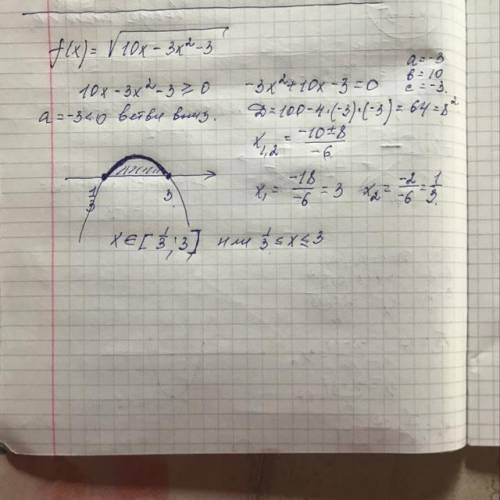 f(x) = √(10x - 3x² - 3)
10x - 3x² - 3 ≥ 0
a = -3 < 0 ветви вниз.
-3x² + 10x - 3 = 0
a = -3
b = 10
c = -3.
D = 100 - 4·(-3)·(-3) = 64 = 8²
x₁,₂ = (-10 ± 8)/(-6)
x₁ = (-18)/(-6) = 3 x₂ = (-2)/(-6) = 1/3.
1/3 3.
x ∈ [1/3; 3] или 1/3 ≤ x ≤ 3